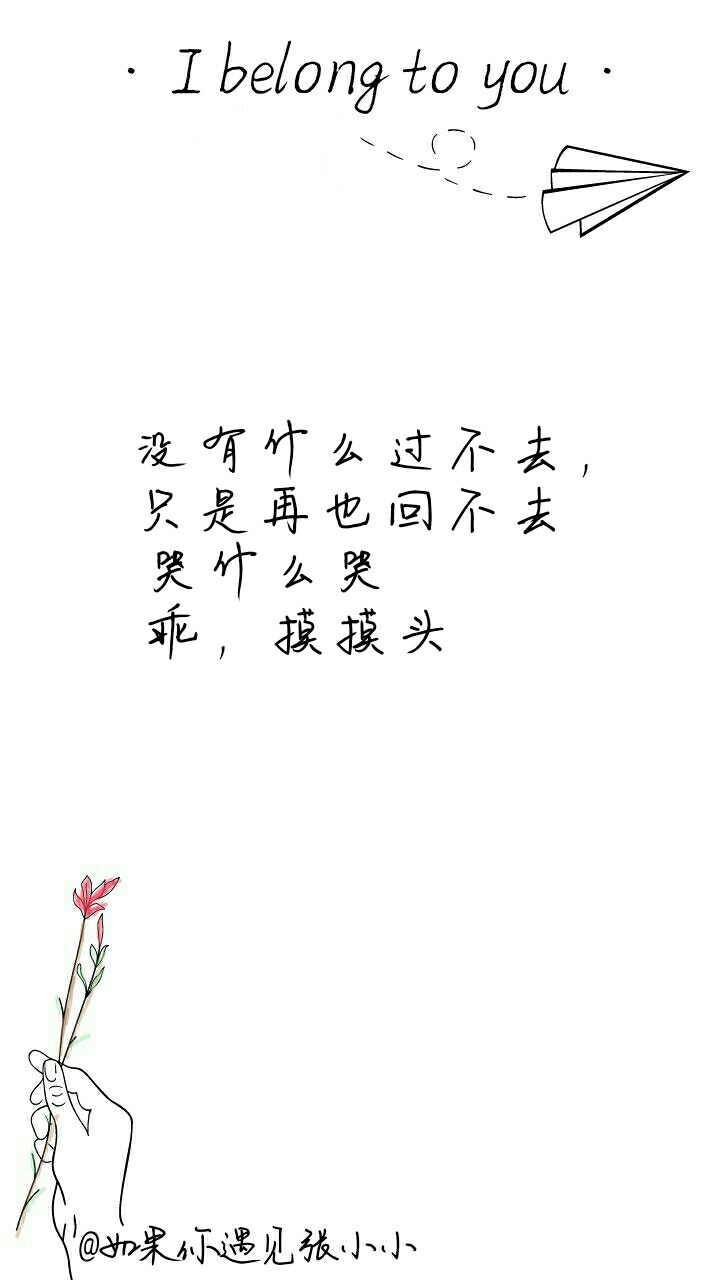 · I belong to you ·
没有什么过不去,
只是再也回不去
哭什么哭
乖,摸摸头
@如果你遇见张小小